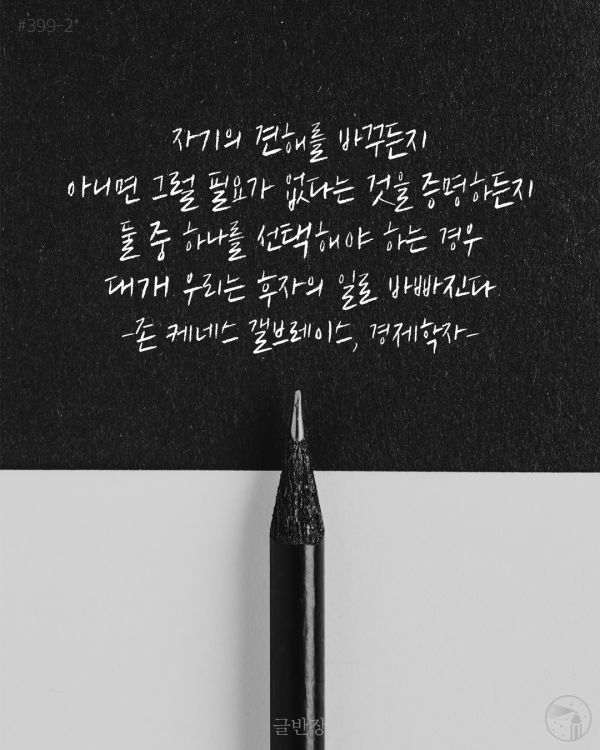 #399-2*
자기의 견해를 바꾸든지
아니면 그럴 필요가 없다는 것을 증명하든지
둘 중 하나를 선택해야 하는 경우
대개 우리는 후자의 일로 바빠진다
-존 케네스 갤브레이스, 경제학자-
글반장